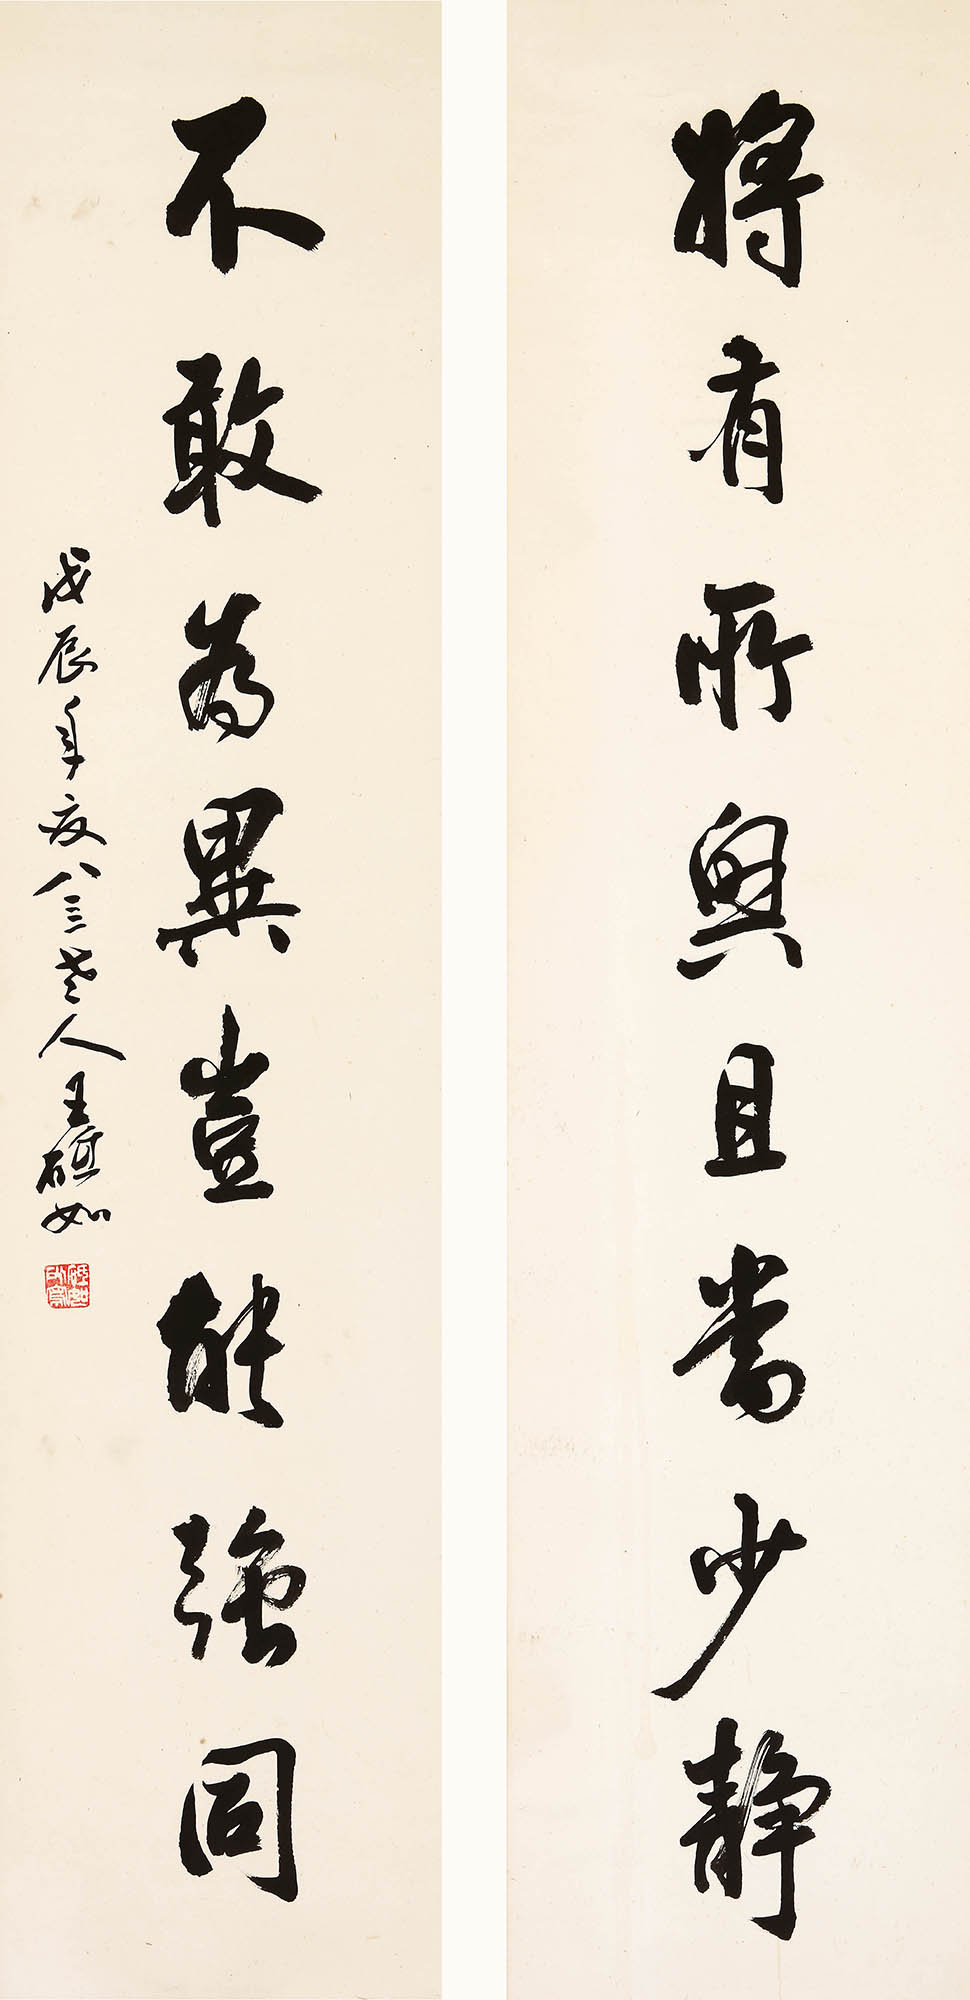 將有所與且當少靜
不敢為異豈能強同
戊辰年夜八三老人王蘧如